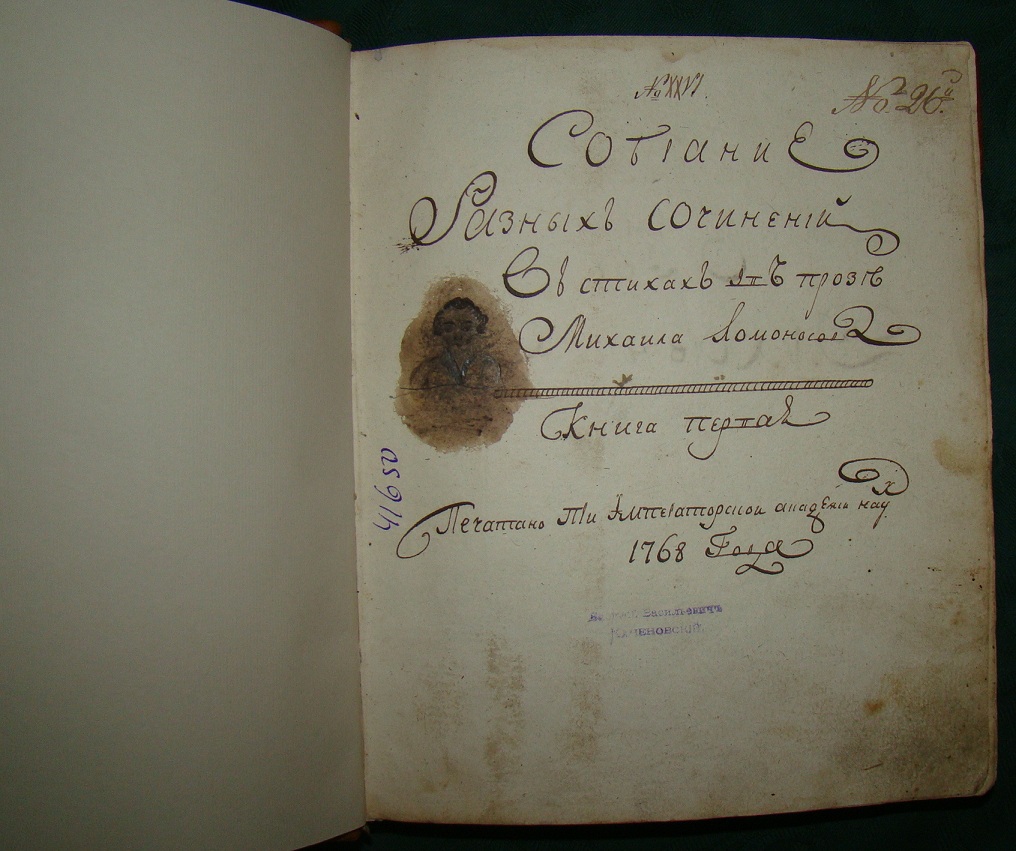 № XXVI
№ 26й
Собраниє
Разныхъ сочиненій
Въ стихахъ івъ прозѣ
Михаила Ломоносова
Книга первая
Печатано При Императорскои академіи наукъ
1768 Года
41650
Васильевичъ